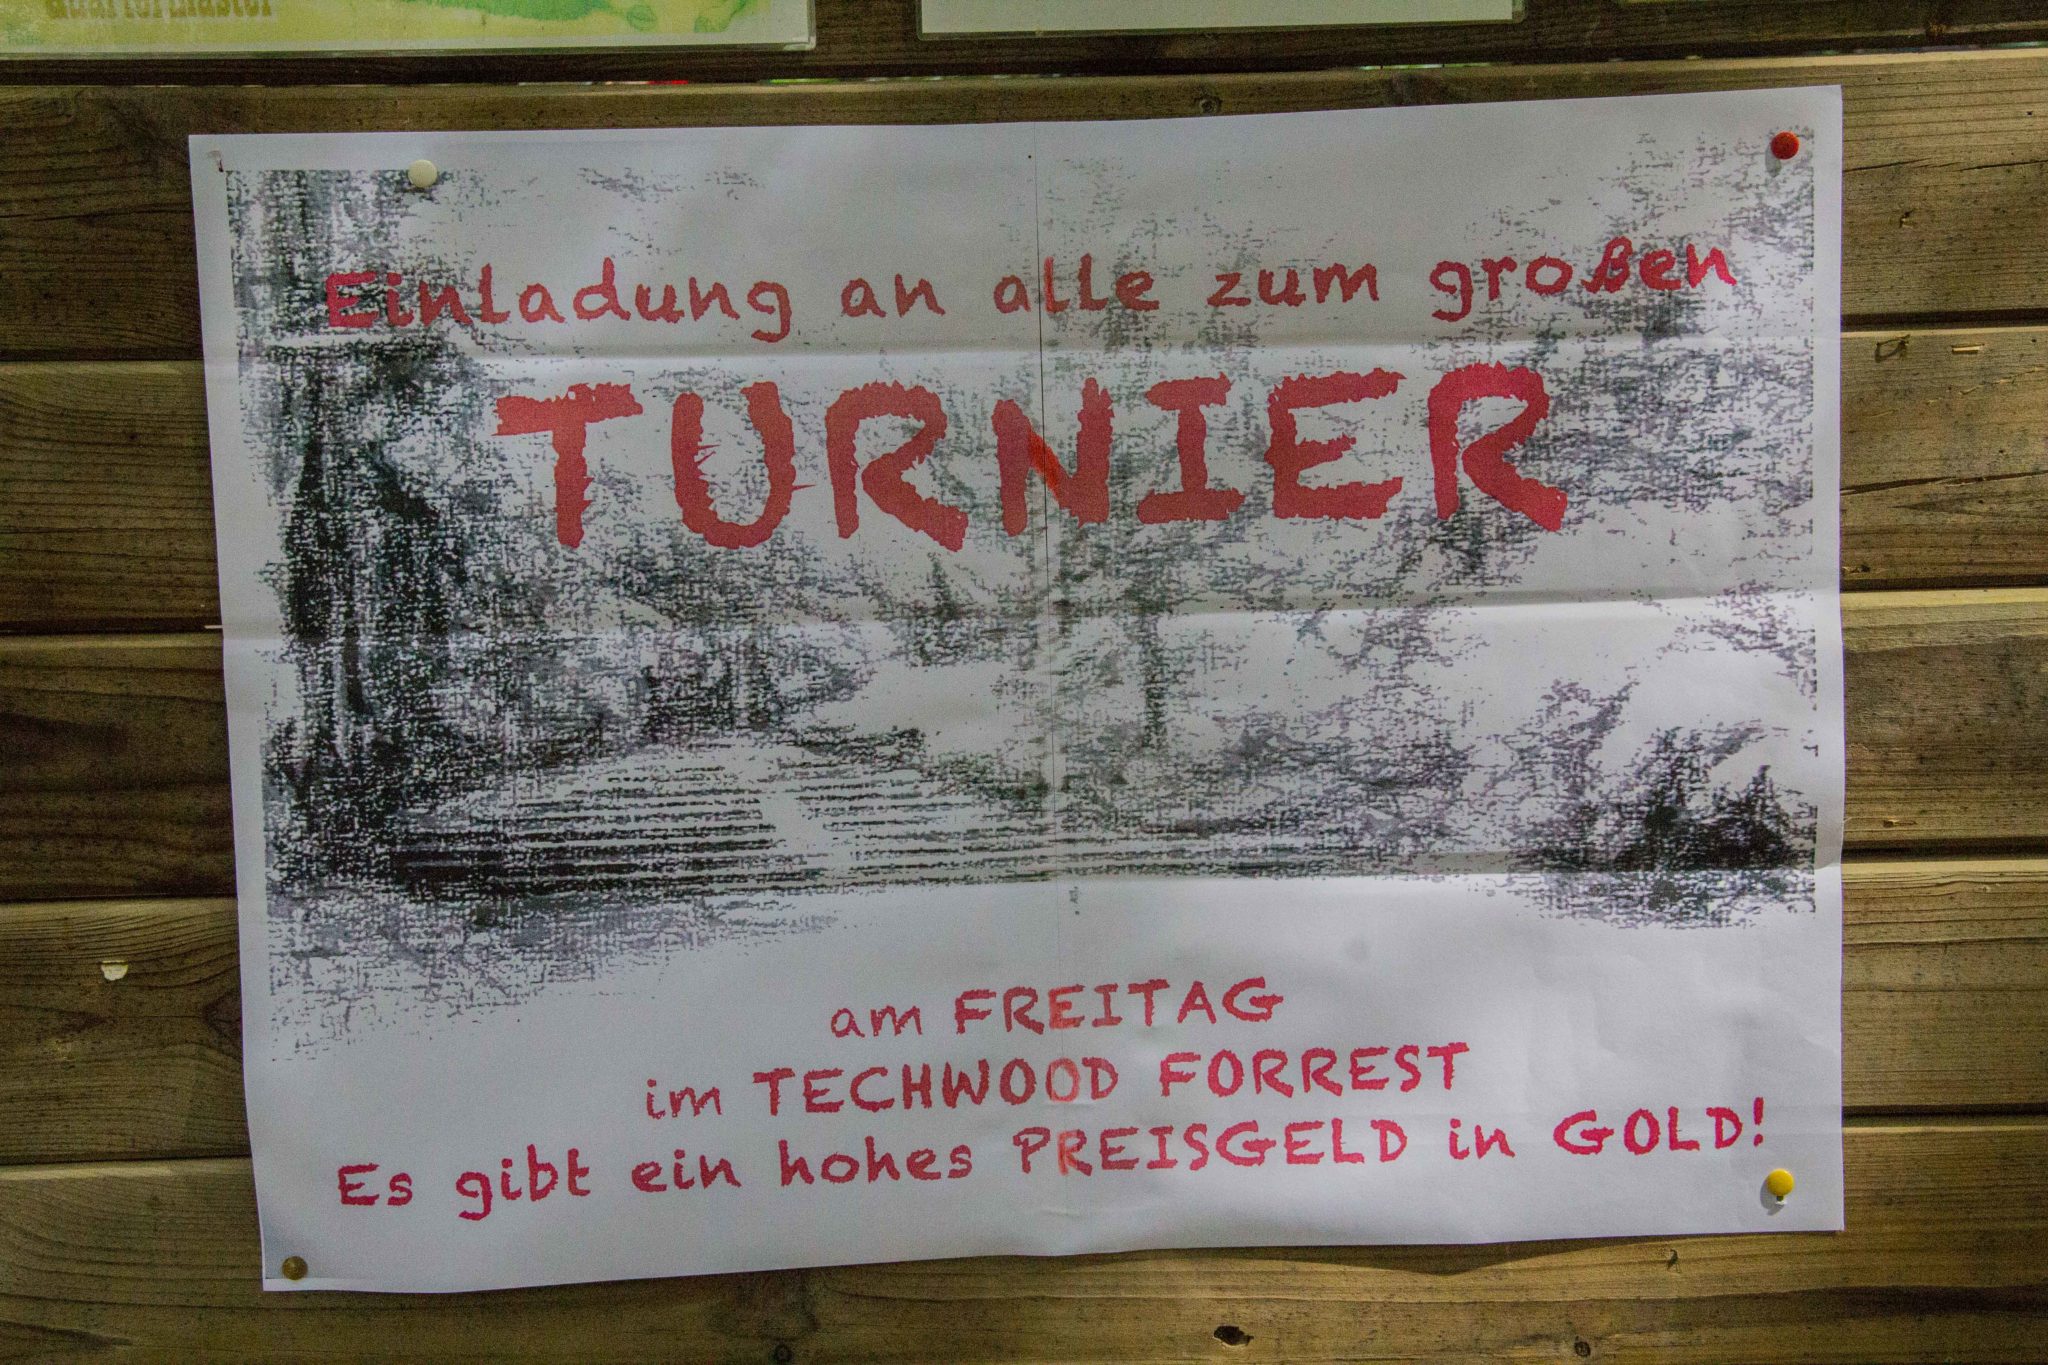 Quartermaster
Einladung an alle zum großen
TURNIER
am FREITAG
im TECHWOOD FORREST
Es gibt ein hohes PREISGELD in GOLD!